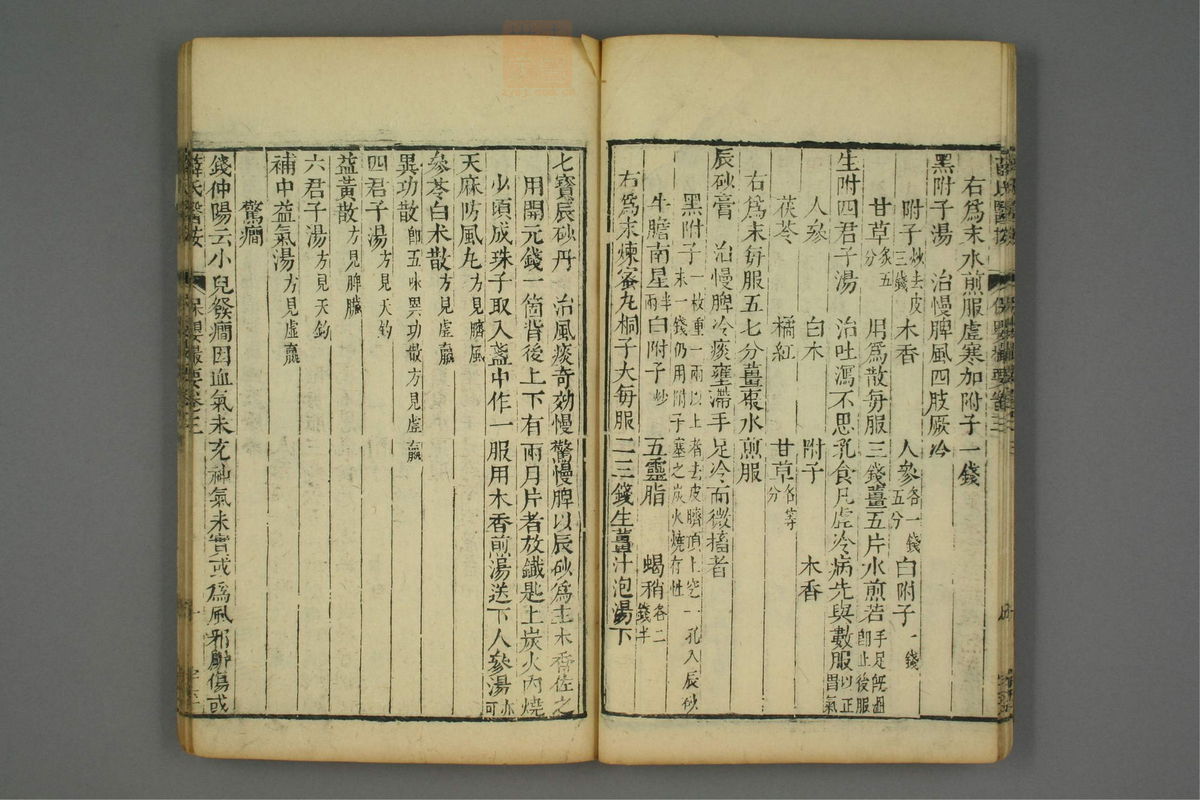 右爲末水煎服虛寒加附子一錢
黑附子湯　治慢脾風四肢厥冷
附子炒去皮三錢　木香　人參各一錢五分　白附子一錢
甘草炙五分　右爲散每服三錢薑五片水煎若手足既溫卽止後服
生附四君子湯　治吐瀉不思乳食凡虛冷病先與數服以正胃氣
人參　白术　附子　木香
茯苓　橘紅　甘草各等分
右爲末每服五七分薑棗水煎服
辰砂膏　治慢脾冷痰壅滯手足冷而微搐者
黑附子一枚重一兩以上者去皮臍頂上空一孔入辰砂末一錢仍用附子塞之炭火燒存性
牛膽南星半兩　白附子炒　五靈脂　蝎稍各二錢半
右爲末煉蜜丸桐子大每服二三錢生薑汁泡湯下
七寶辰砂丹　治風痰奇效慢驚慢脾以辰砂爲主木香佐之
用開元錢一箇背後上下有兩月片者放鐵匙上炭火內燒
少頃成珠子取入盞中作一服用木香煎湯送下人參湯亦可
天麻防風丸方見臍風
參苓白术散方見虛羸
異功散卽五味異功散方見虛羸
四君子湯方見天釣
益黃散方見脾臟
六君子湯方見天釣
補中益氣湯方見虛羸
驚癇
錢仲陽云小兒發癇因血氣未充神氣未實或爲風邪所傷或
薛氏醫按　保嬰撮要卷之三